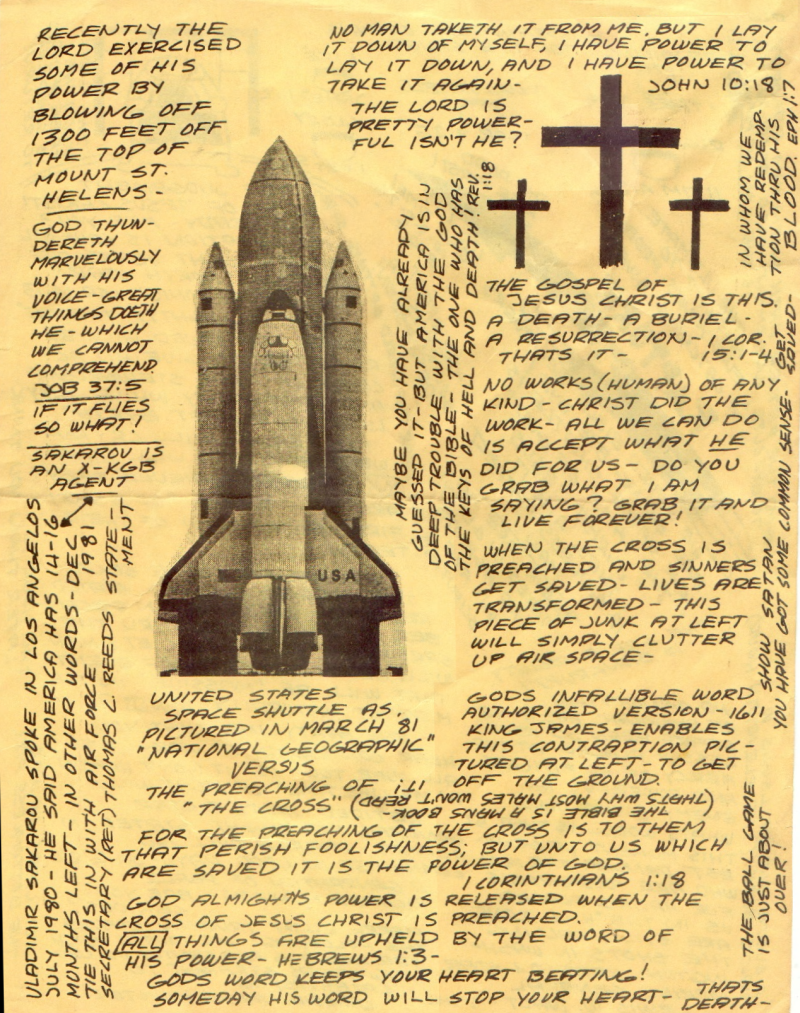 RECENTLY THE
LORD EXERCISED
SOME OF HIS
POWER BY
BLOWING OFF
1300 FEET OFF
THE TOP OF
MOUNT ST.
HELENS -
GOD THUN-
DERETH
MARVELOUSLY
WITH HIS
VOICE - GREAT
THINGS DOETH
HE - WHICH
WE CANNOT
COMPREHEND
JOB 37:5
IF IT FLIES
SO WHAT!
SAKAROU IS
AN X-KGB
AGENT
VLADIMIR SAKAROU SPOKE IN LOS ANGELOS
JULY 1980 - HE SAID AMERICA HAS 14-16
MONTHS LEFT - IN OTHER WORDS - DEC 1981
TIE THIS IN WITH AIR FORCE
SECRETARY (RET) THOMAS C. REEDS STATE-
MENT
NO MAN TAKETH IT FROM ME, BUT I LAY
IT DOWN OF MYSELF, I HAVE POWER TO
LAY IT DOWN, AND I HAVE POWER TO
TAKE IT AGAIN - JOHN 10:18
THE LORD IS
PRETTY POWER-
FUL ISN'T HE?
IN WHOM WE
HAVE REDEMP-
TION THRU HIS
BLOOD. EPH 1:7
MAYBE YOU HAVE ALREADY
GUESSED IT - BUT AMERICA IS IN
DEEP TROUBLE WITH THE GOD
OF THE BIBLE - THE ONE WHO HAS
THE KEYS OF HELL AND DEATH! REV. 1:18
THE GOSPEL OF
JESUS CHRIST IS THIS.
A DEATH - A BURIEL -
A RESURRECTION - 1 COR.
THATS IT - 15:1-4
NO WORKS (HUMAN) OF ANY
KIND - CHRIST DID THE
WORK - ALL WE CAN DO
IS ACCEPT WHAT HE
DID FOR US - DO YOU
GRAB WHAT I AM
SAYING? GRAB IT AND
LIVE FOREVER!
WHEN THE CROSS IS
PREACHED AND SINNERS
GET SAVED - LIVES ARE
TRANSFORMED - THIS
PIECE OF JUNK AT LEFT
WILL SIMPLY CLUTTER
UP AIR SPACE -
SHOW SATAN
YOU HAVE GOT SOME COMMON SENSE - GET
SAVED -
USA
UNITED STATES
SPACE SHUTTLE AS
PICTURED IN MARCH 81
"NATIONAL GEOGRAPHIC"
VERSIS
THE PREACHING OF
"THE CROSS"
THE BIBLE IS A MANS BOOK -
(THATS WHY MOST MALES WON'T READ)
IT!
GODS INFALLIBLE WORD
AUTHORIZED VERSION - 1611
KING JAMES - ENABLES
THIS CONTRAPTION PIC-
TURED AT LEFT - TO GET
OFF THE GROUND.
FOR THE PREACHING OF THE CROSS IS TO THEM
THAT PERISH FOOLISHNESS; BUT UNTO US WHICH
ARE SAVED IT IS THE POWER OF GOD.
1 CORINTHIANS 1:18
GOD ALMIGHTYS POWER IS RELEASED WHEN THE
CROSS OF JESUS CHRIST IS PREACHED.
ALL THINGS ARE UPHELD BY THE WORD OF
HIS POWER - HEBREWS 1:3 -
GODS WORD KEEPS YOUR HEART BEATING!
SOMEDAY HIS WORD WILL STOP YOUR HEART - THATS
DEATH -
THE BALL GAME
IS JUST ABOUT
OVER!